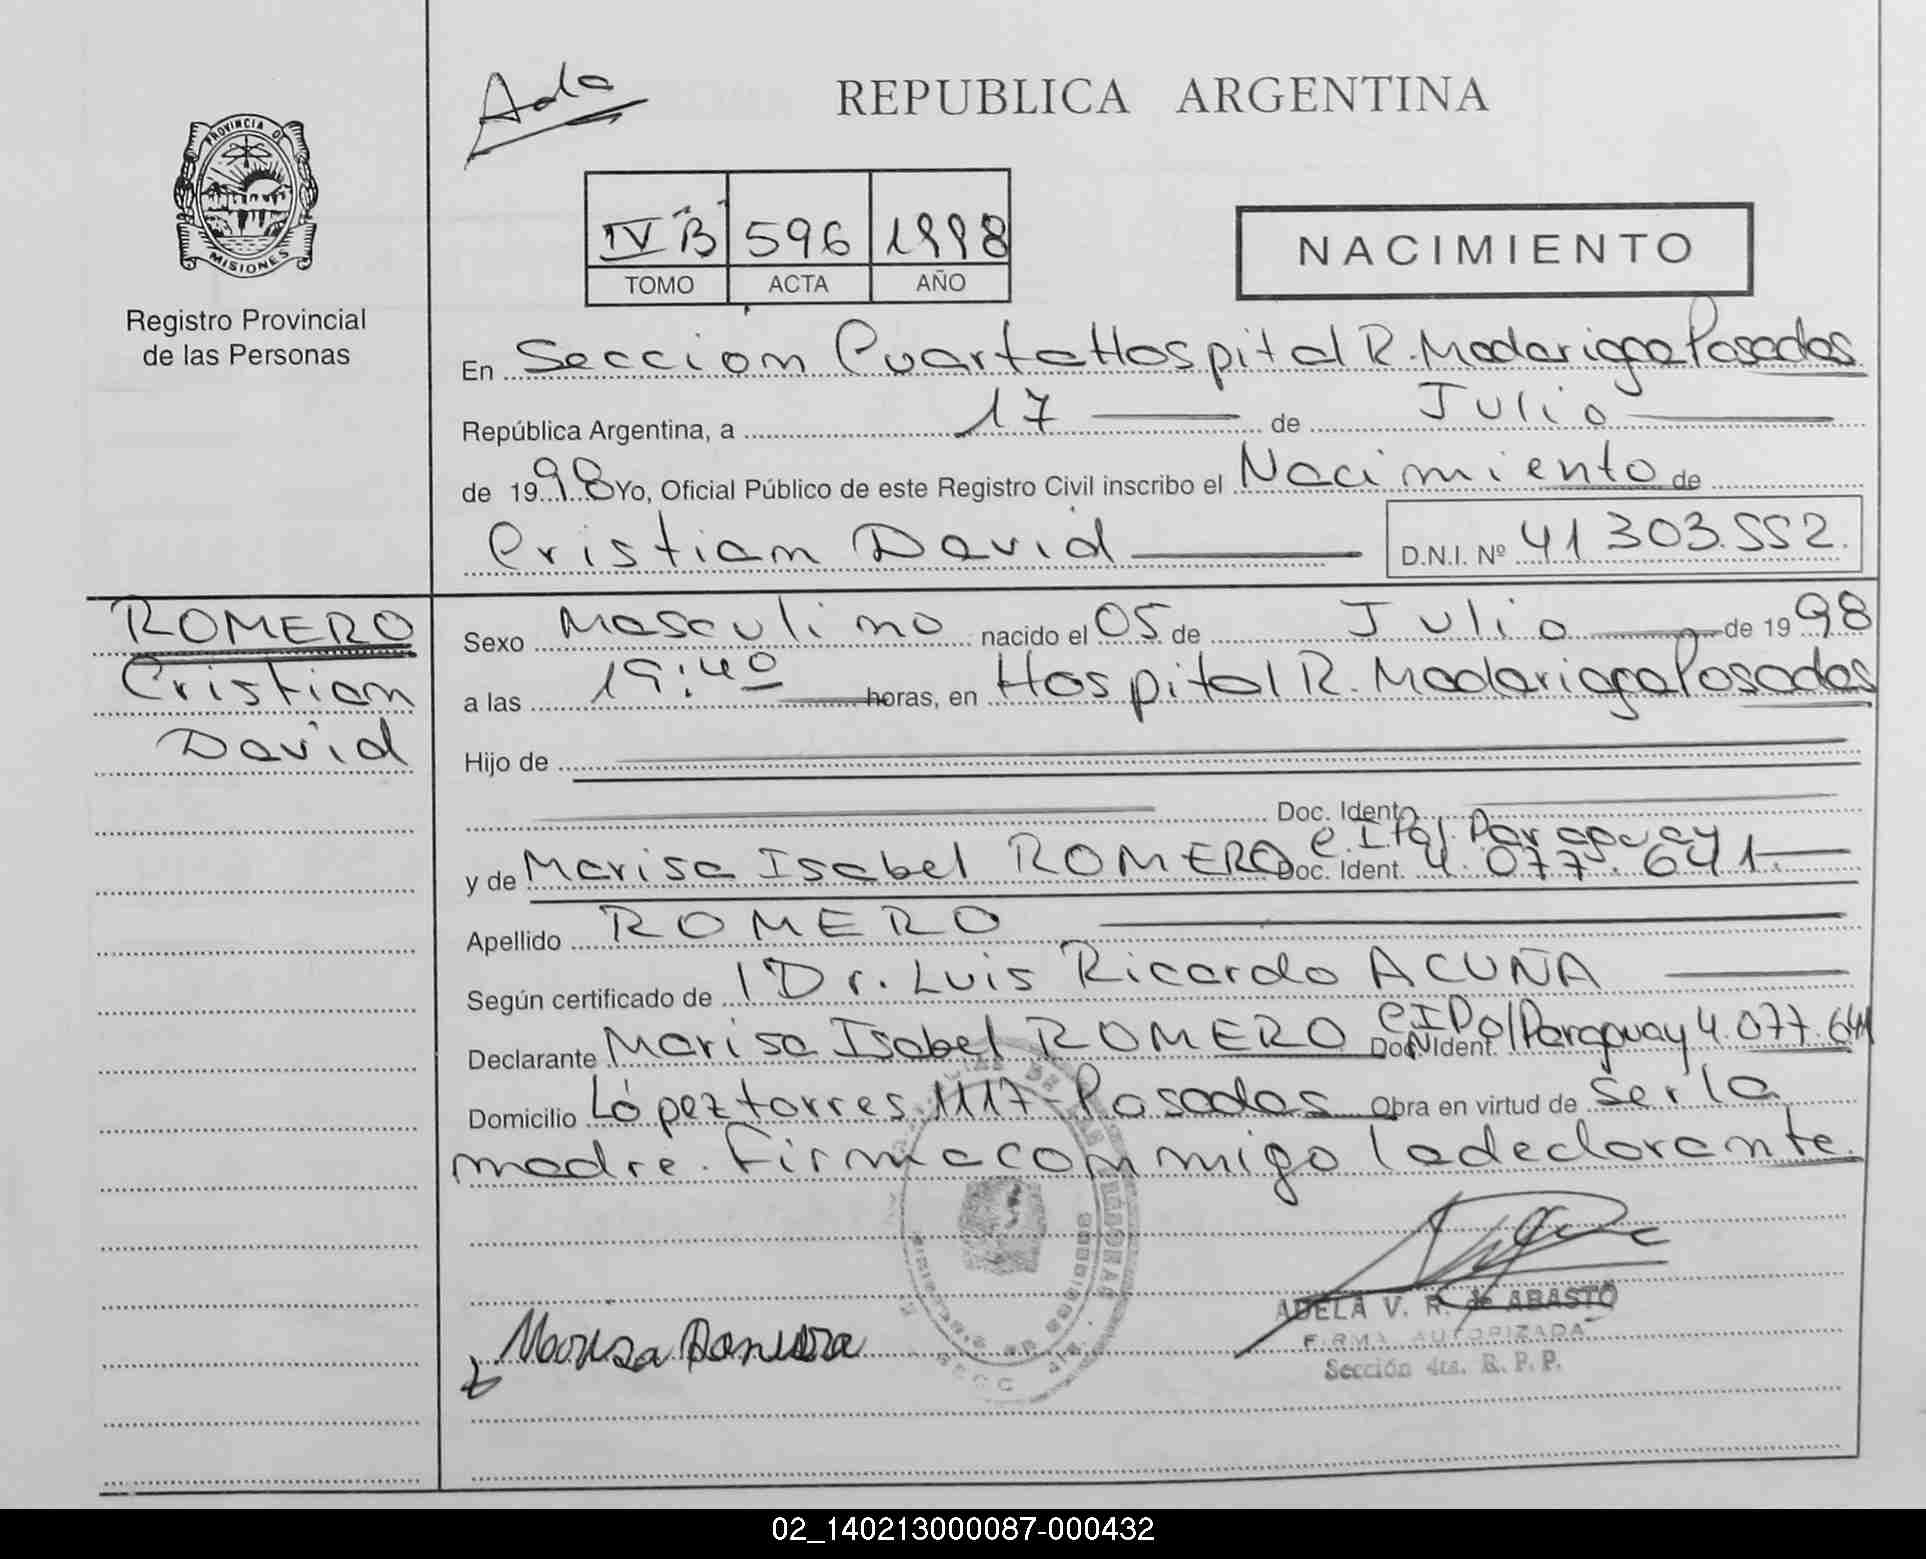 Ada
REPUBLICA ARGENTINA
PROVINCIA DE
MISIONES
Registro Provincial
de las Personas
IV "B" 596 1998
TOMO ACTA AÑO
NACIMIENTO
En Sección Cuarta Hospital R. Madariaga Posadas
República Argentina, a 17 de Julio
de 1998 Yo, Oficial Público de este Registro Civil inscribo el Nacimiento de
Cristian David D.N.I. Nº 41 303.552.
ROMERO
Cristian
David
Sexo Masculino nacido el 05 de Julio de 1998
a las 19:40 horas, en Hospital R. Madariaga Posadas
Hijo de
Doc. Ident.
y de Marisa Isabel ROMERO Doc. Ident. C.I.Pol. Paraguay 4.077.641
Apellido ROMERO
Según certificado de Dr. Luis Ricardo ACUÑA
Declarante Marisa Isabel ROMERO Doc. Ident. CIPol Paraguay 4.077.641
Domicilio López torres 1117-Posadas Obra en virtud de ser la
madre. Firma conmigo la declarante.
Marisa
ADELA V. R. de ABASTO
FIRMA AUTORIZADA
Sección 4ta. R. P. P.
02_140213000087-000432